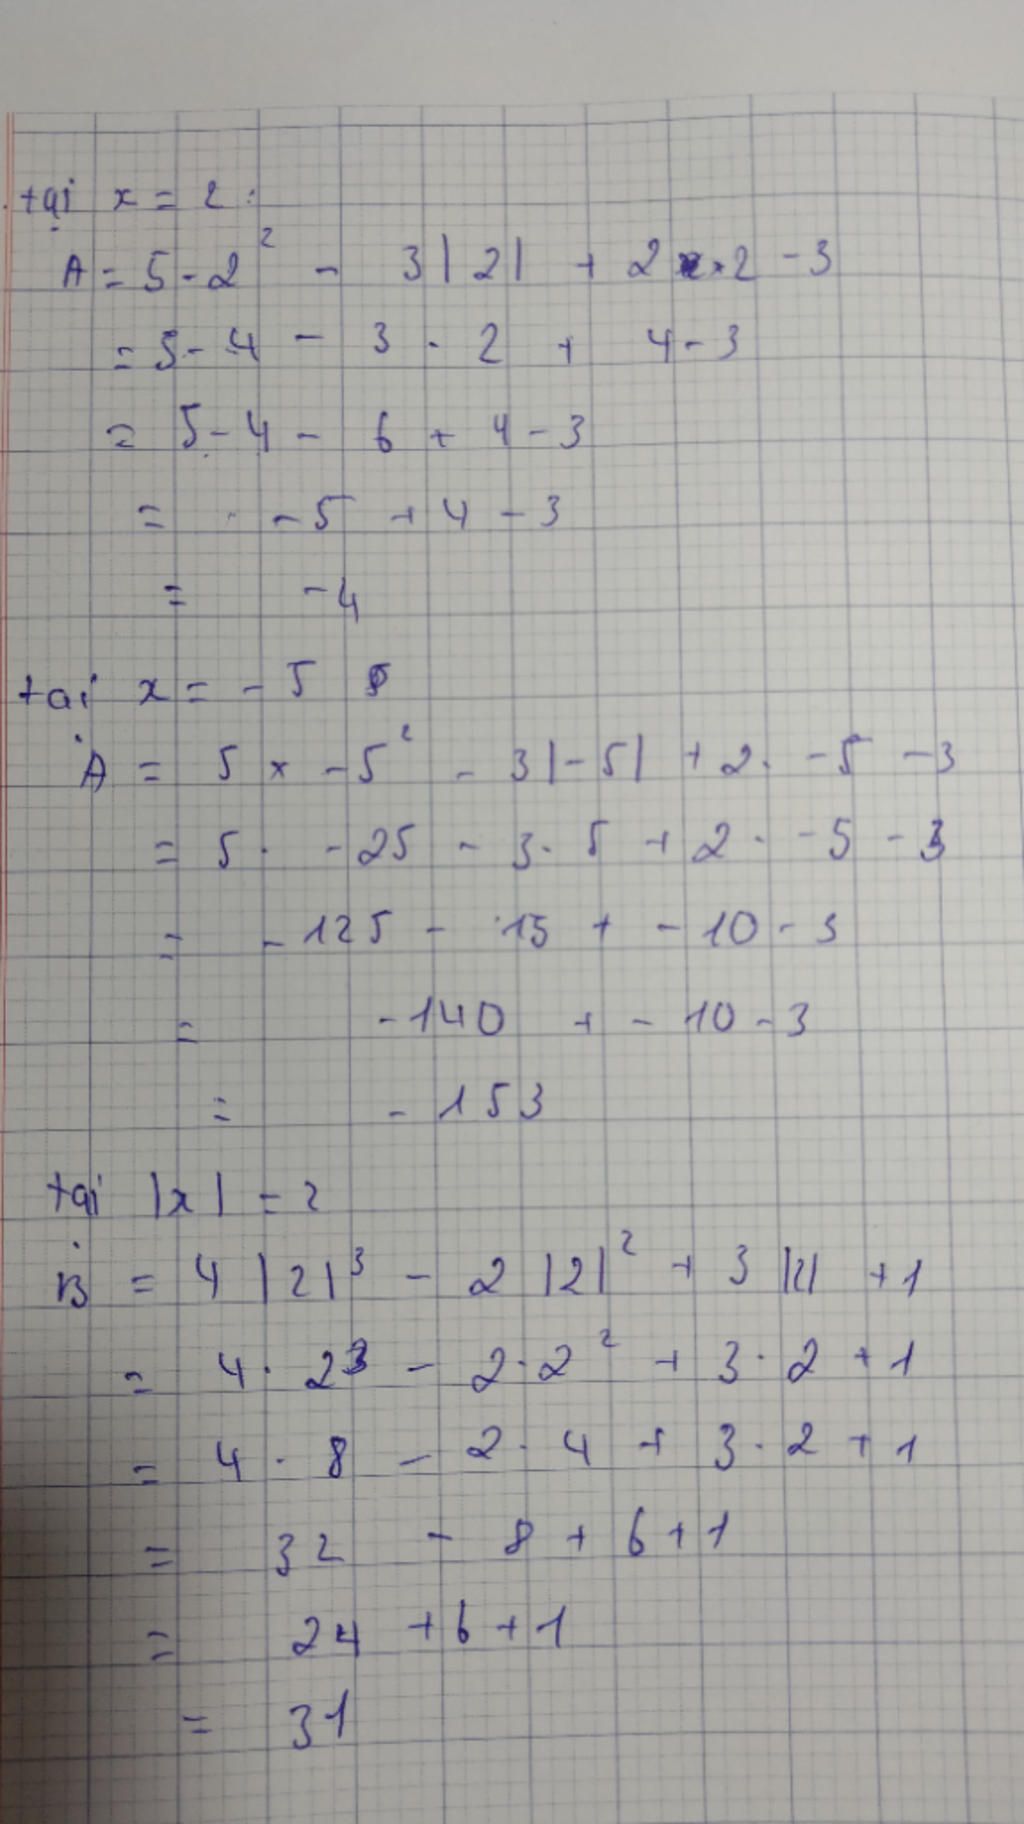 tại x = 2 :
A = 5 - 2² - 3|2| + 2 . 2 - 3
= 5 - 4 - 3 . 2 + 4 - 3
= 5 - 4 - 6 + 4 - 3
= - 5 + 4 - 3
= - 4
tại x = - 5
A = 5 x - 5² - 3|- 5| + 2 . - 5 - 3
= 5 . - 25 - 3 . 5 + 2 . - 5 - 3
= - 125 - 15 + - 10 - 3
= - 140 + - 10 - 3
= - 153
tại |x| = 2
B = 4 |2|³ - 2 |2|² + 3 |2| + 1
= 4 . 2³ - 2 . 2² + 3 . 2 + 1
= 4 . 8 - 2 . 4 + 3 . 2 + 1
= 32 - 8 + 6 + 1
= 24 + 6 + 1
= 31